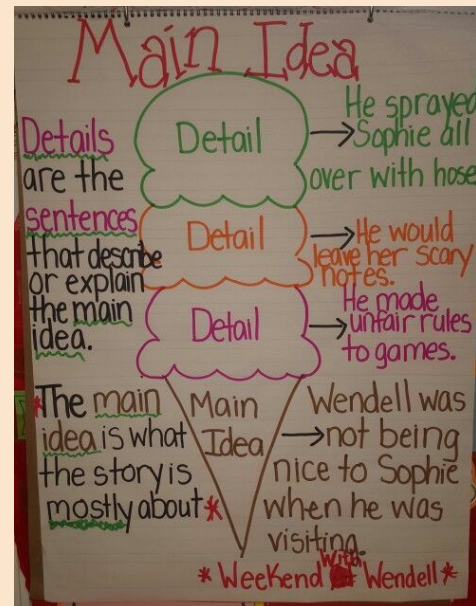 Main Idea
Details
are the
sentences
that describe
or explain
the main
idea.
Detail
He sprayed
Sophie all
over with hose
Detail
He would
leave her scary
notes.
Detail
He made
unfair rules
to games.
*The main
idea is what
the story is
mostly about*
Main
Idea
Wendell was
not being
nice to Sophie
when he was
visiting.
*Weekend With Wendell*